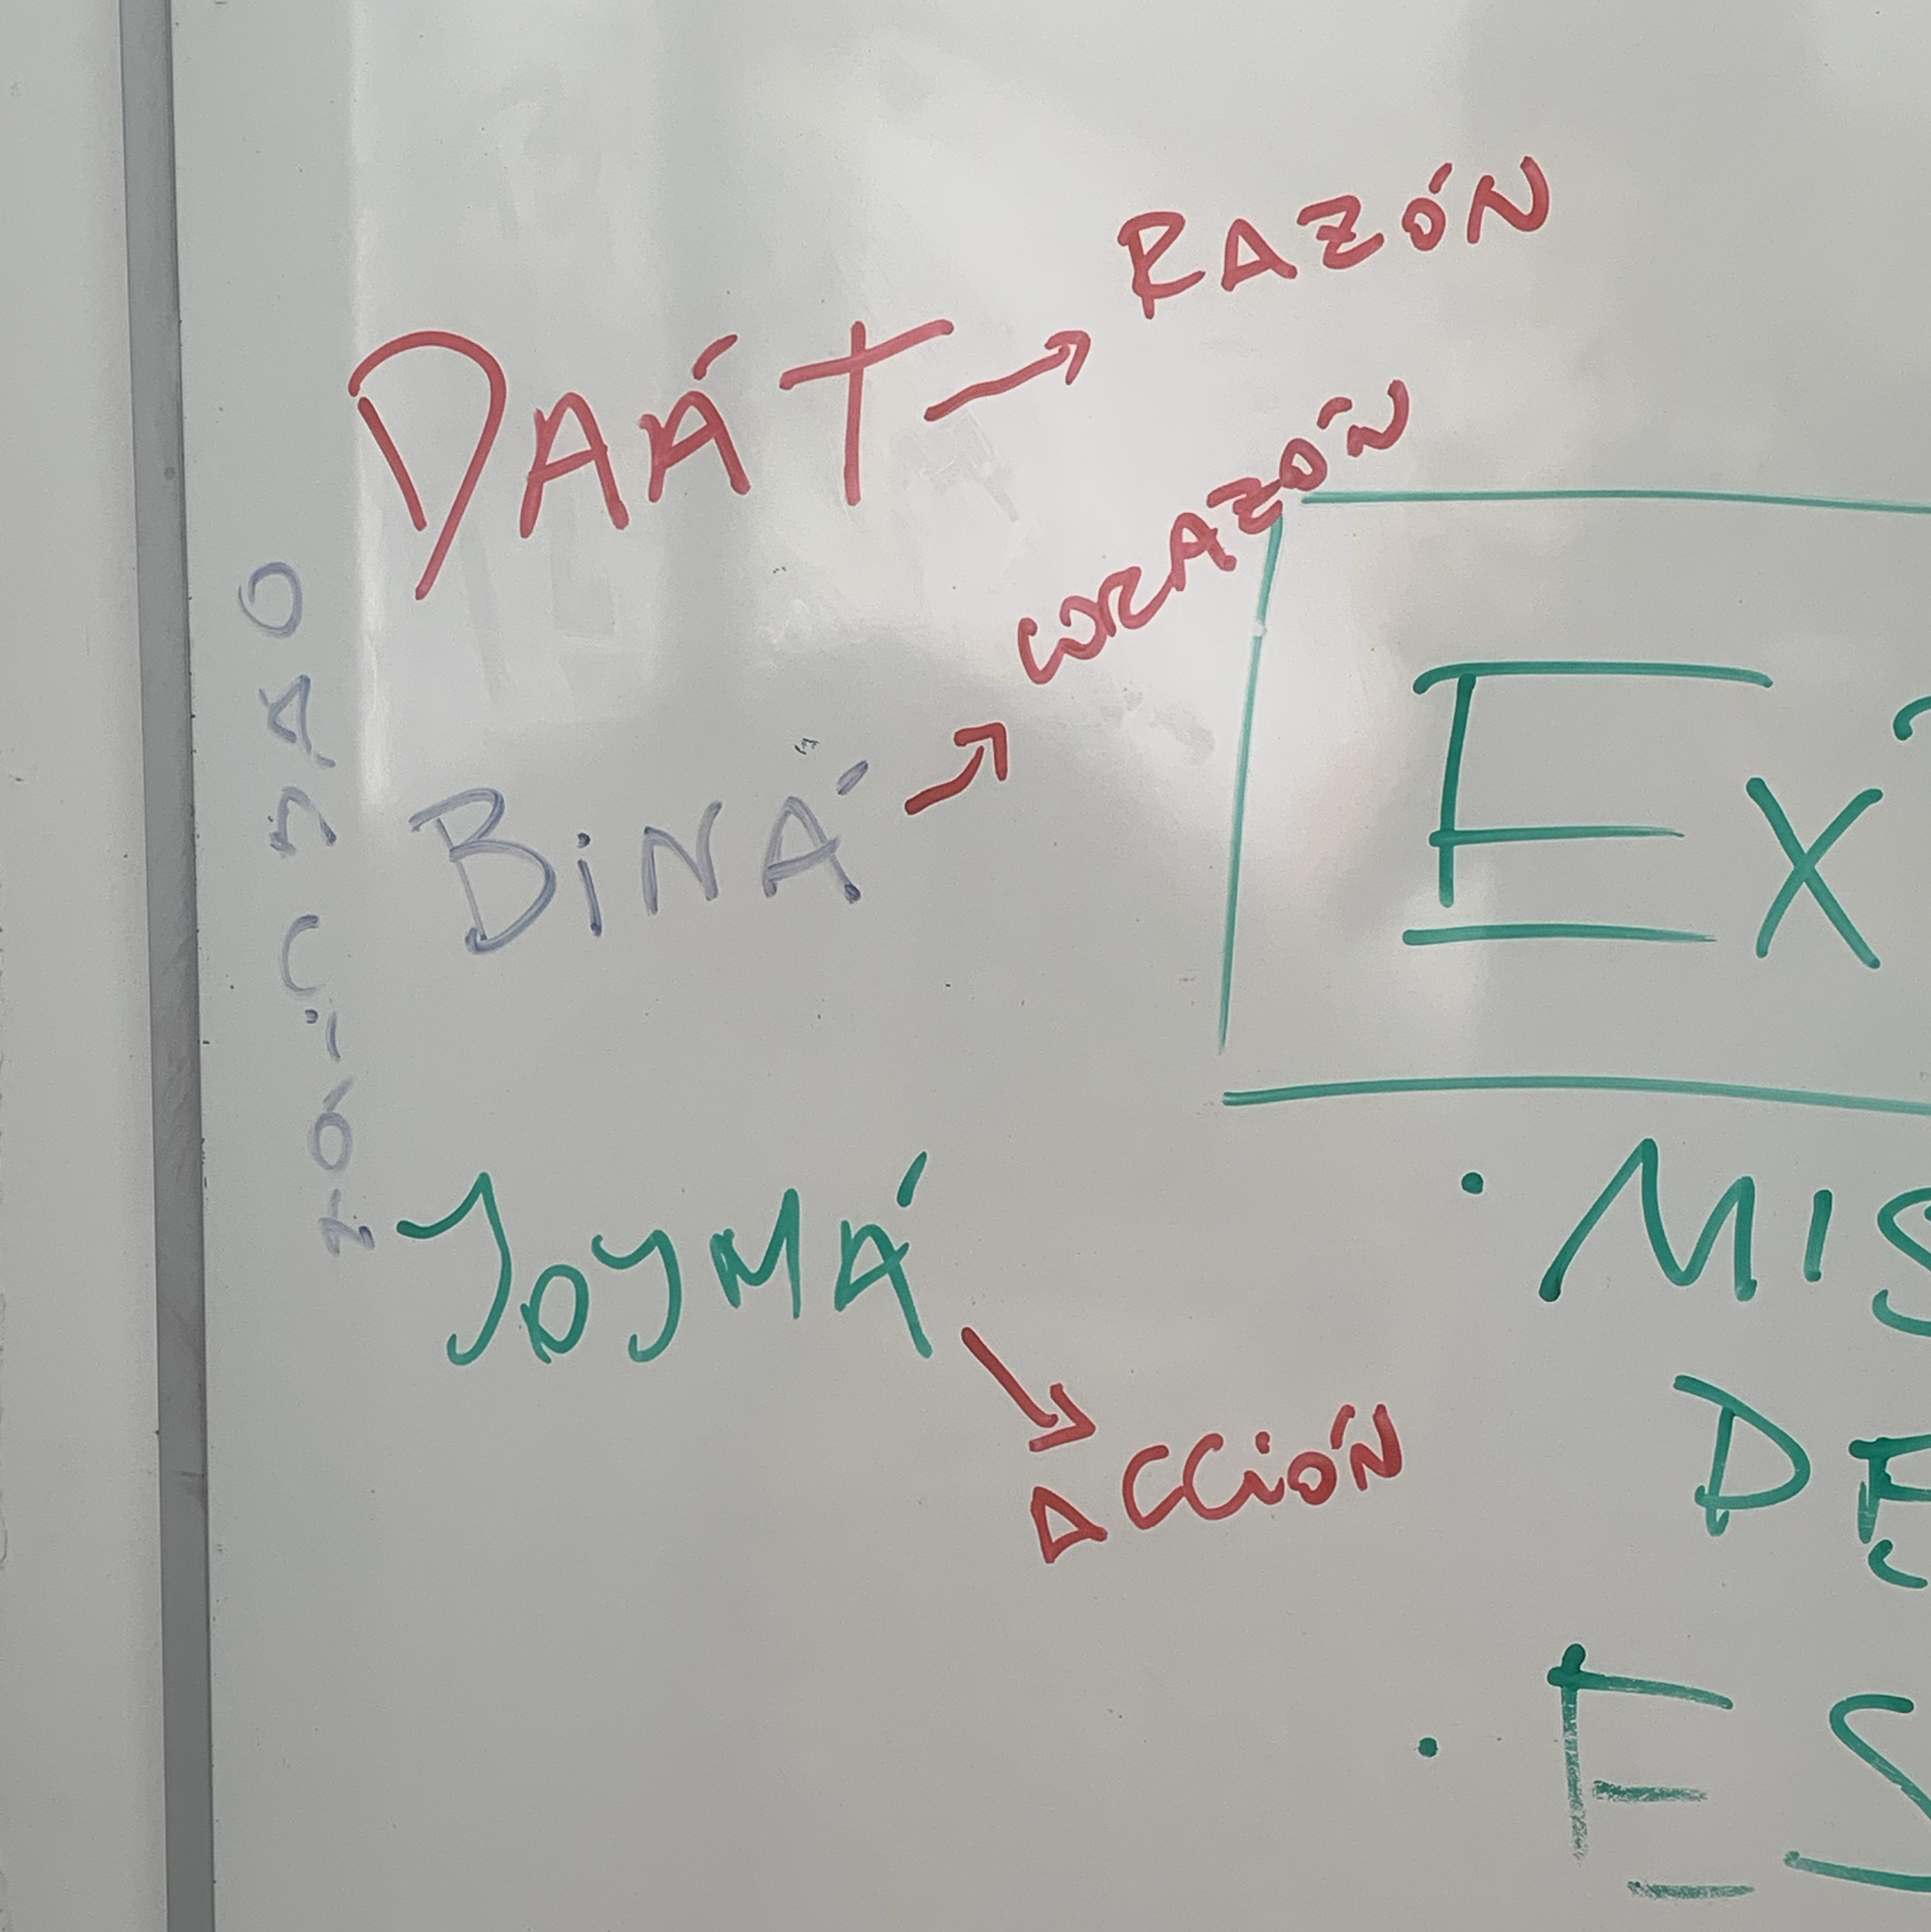 DAÁT → RAZÓN
BINÁ → CORAZÓN
JOYMÁ
ACCIÓN
EX
· MIS
DE
· ES